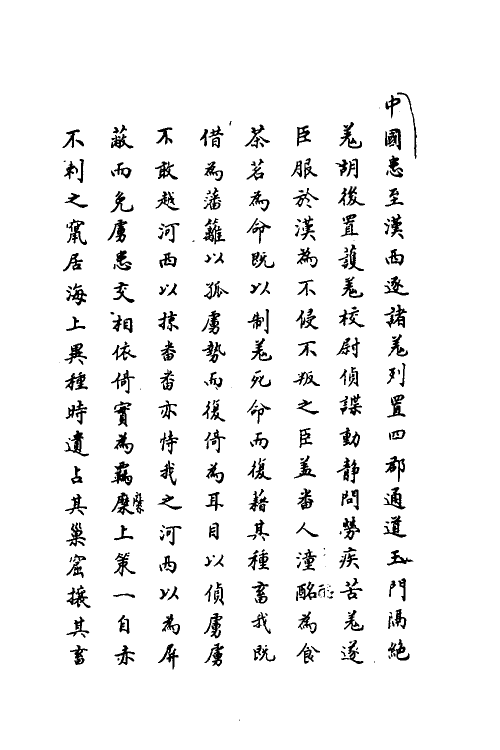 中國患至漢西逐諸羗列置四郡通道玉門隔絶
羗胡後置護羗校尉偵諜動静問勞疾苦羗遂
臣服於漢為不侵不叛之臣盖畨人潼酩為食
茶茗為命既以制羗死命而復藉其種畜我既
借為藩籬以孤虜勢而復倚為耳目以偵虜虜
不敢越河西以掠畨畨亦恃我之河西以為屏
蔽而免虜患交相依倚實為羈糜上策一自亦
不剌之竄居海上異種時遺占其巢窟攘其畜